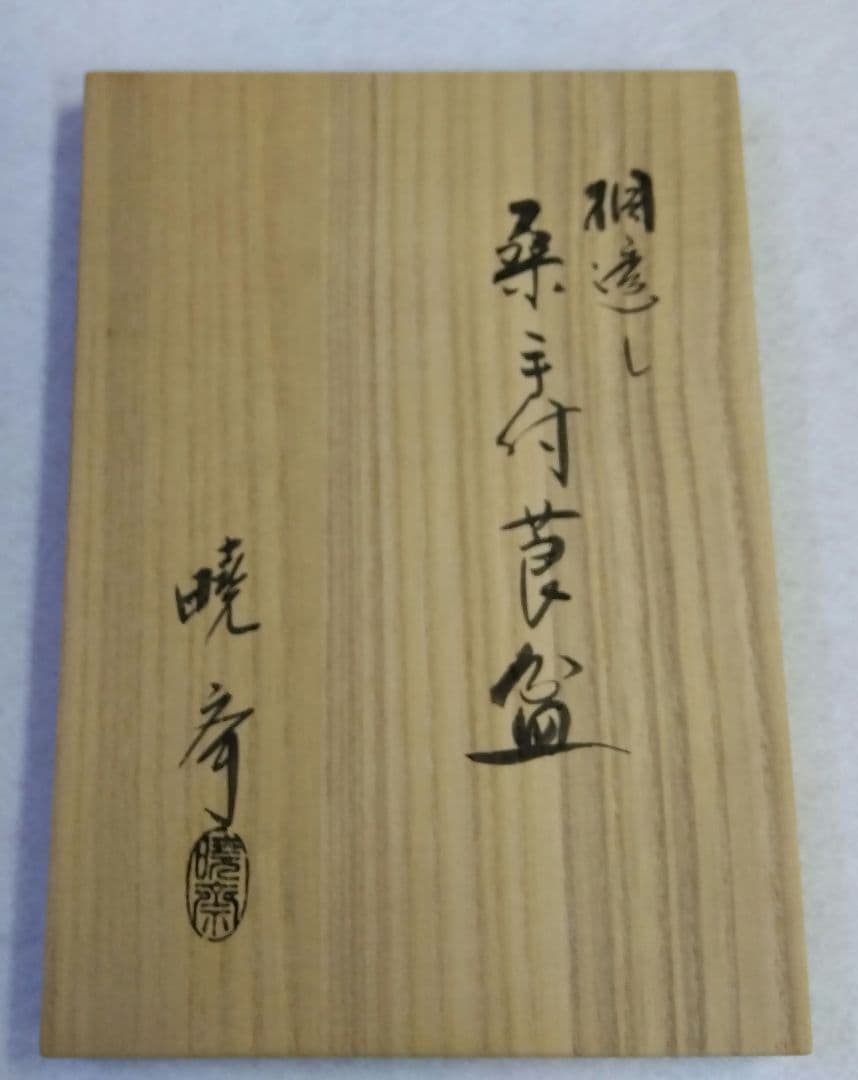 桐透し
桑手付莨盆
暁斉
暁斎